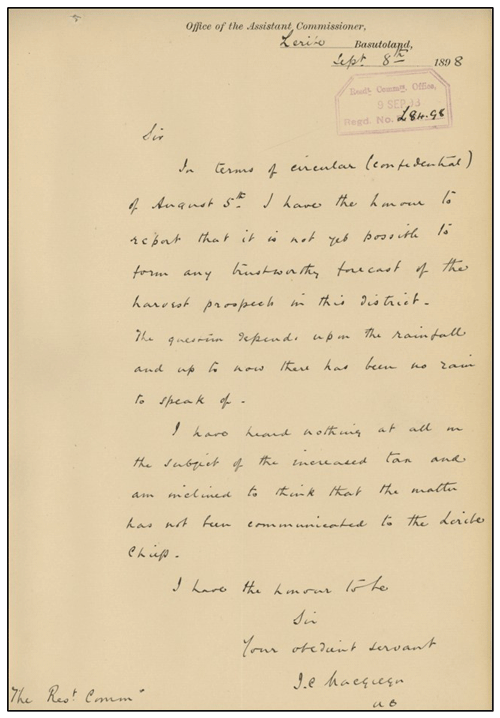 Office of the Assistant Commissioner,
Leribe Basutoland,
Sept. 8th 1898
Resdt. Commr. Office,
9 SEP
Regd. No. L84.98
Sir
In terms of circular (confidential)
of August 5th I have the honour to
report that it is not yet possible to
form any trustworthy forecast of the
harvest prospects in this district.
The question depends upon the rainfall
and up to now there has been no rain
to speak of.
I have heard nothing at all on
the subject of the increased tax and
am inclined to think that the matter
has not been communicated to the Leribe
Chiefs.
I have the honour to be
Sir
Your obedient servant
J.C Macgregor
The Rest. Comm